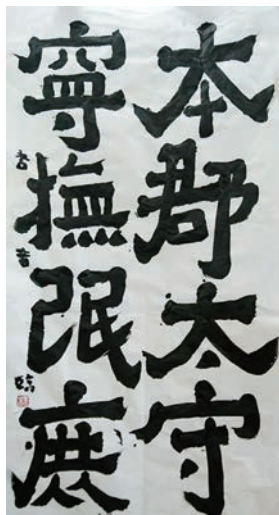 本郡太守
寧撫氓庶
臨